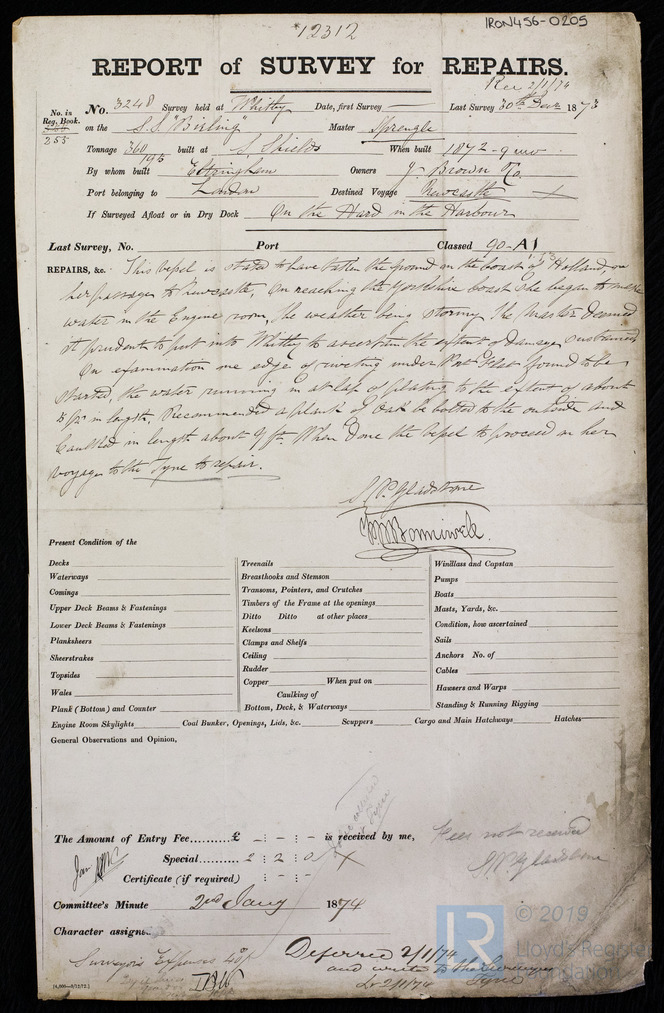 12312
IRON456-0205
REPORT of SURVEY for REPAIRS.
Rec 2/1/74
No. in Reg. Book.
255
No. 3248 Survey held at Whitby Date, first Survey — Last Survey 30th Decr 1873
on the S.S. "Birling" Master Sprengle
Tonnage 360 built at S. Shields When built 1872-9 mo
195
By whom built Eltringham Owners J. Brown & Co.
Port belonging to London Destined Voyage Newcastle
If Surveyed Afloat or in Dry Dock On the Hard in the Harbour
Last Survey, No. Port Classed 90-A1
REPAIRS, &c. This vessel is stated to have taken the ground on the coast of Holland, on
her passage to Newcastle, On reaching the Yorkshire coast she began to make
water in the Engine room, the weather being stormy the Master deemed
it prudent to put into Whitby to ascertain the extent of damage sustained
On examination one edge of riveting under Port Flat found to be
started, the water running in at lap of plating to the extent of about
in length, Recommended a plank of Oak be bolted to the outside and
Caulked in length about 9 ft. When done the vessel to proceed on her
voyage to the Tyne to repair.
S.P. Gladstone
Bonniwell.
Present Condition of the
Decks
Waterways
Comings
Upper Deck Beams & Fastenings
Lower Deck Beams & Fastenings
Planksheers
Sheerstrakes
Topsides
Wales
Plank (Bottom) and Counter
Treenails
Breasthooks and Stemson
Transoms, Pointers, and Crutches
Timbers of the Frame at the openings
Ditto Ditto at other places
Keelsons
Clamps and Shelfs
Ceiling
Rudder
Copper When put on
Caulking of
Bottom, Deck, & Waterways
Windlass and Capstan
Pumps
Boats
Masts, Yards, &c.
Condition, how ascertained
Sails
Anchors No. of
Cables
Hawsers and Warps
Standing & Running Rigging
Engine Room Skylights Coal Bunker, Openings, Lids, &c. Scuppers Cargo and Main Hatchways Hatches
General Observations and Opinion,
The Amount of Entry Fee..........£ - : - : - is received by me, Fees not received
Special.......... 2 : 2 : 0 S.P. Gladstone
Certificate (if required) : - : -
Committee's Minute 2nd Jany 1874
Character assigned
Surveyor's Expenses
Deferred 2/1/74
and write to the Surveyor
Lr 2/1/74 Tyne
[4,000—9/12/72.]
© 2019
Lloyd's Register
Foundation
LR